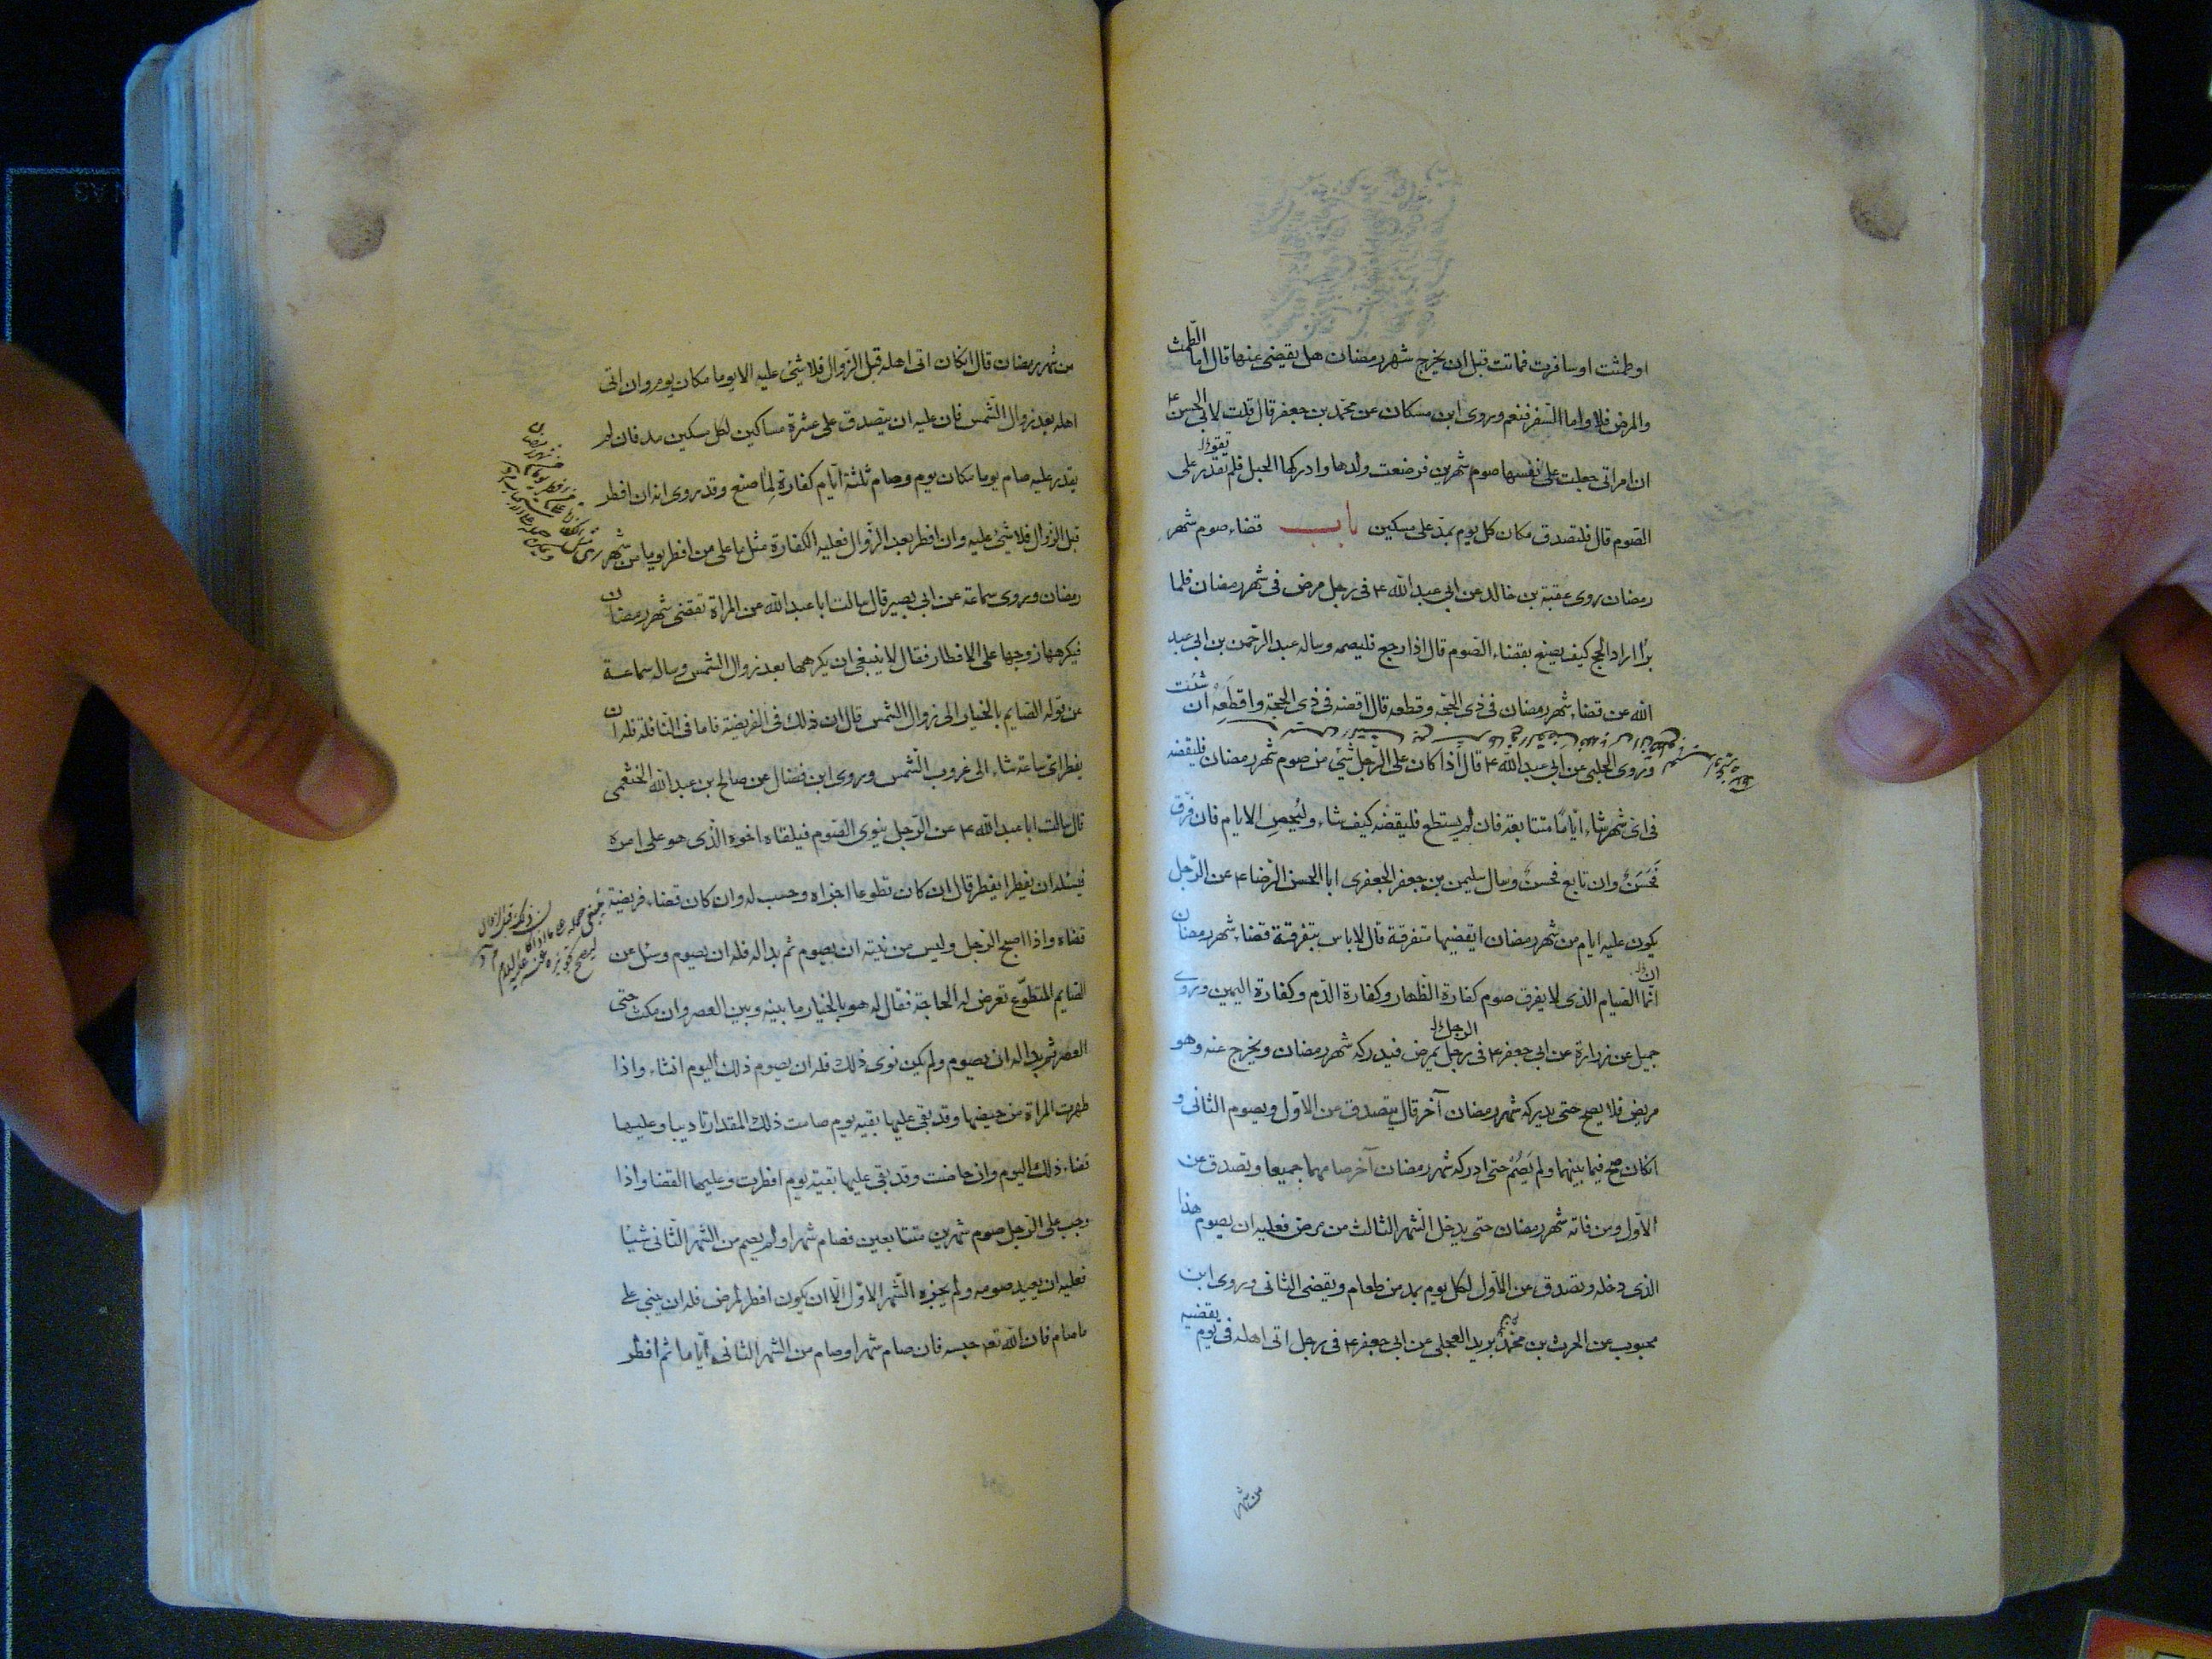 او طمثت او سافرت فماتت قبل ان يخرج شهر رمضان هل يقضى عنها قال اما الطمث
والمرض فلا واما السفر فنعم وروى ابن مسكان عن محمد بن جعفر قال قلت لابى الحسن ع
ان امراتى جعلت على نفسها صوم شهرين فوضعت ولدها وادركها الحبل فلم تقدر على
الصوم قال فلتصدق مكان كل يوم بمد على مسكين باب قضاء صوم شهر
رمضان روى عقبة بن خالد عن ابى عبد الله ع فى رجل مرض فى شهر رمضان فلما
برا اراد الحج كيف يصنع بقضاء الصوم قال اذا رجع فليصمه وساله عبد الرحمن بن ابى عبد
الله عن قضاء شهر رمضان فى ذى الحجة وقطعه قال اقضه فى ذى الحجة واقطعه ان شئت
وروى الحلبى عن ابى عبد الله ع قال اذا كان على الرجل شئ من صوم شهر رمضان فليقضه
فى اى شهر شاء اياما متتابعة فان لم يستطع فليقضه كيف شاء وليحص الايام فان فرق
فحسن وان تابع فحسن وسال سليمن بن جعفر الجعفرى ابا الحسن الرضا ع عن الرجل
يكون عليه ايام من شهر رمضان ايقضيها متفرقة قال لا باس بتفرقة قضاء شهر رمضان
انما الصيام الذى لا يفرق صوم كفارة الظهار وكفارة الدم وكفارة اليمين وروى
جميل عن زرارة عن ابى جعفر ع فى رجل يمرض فيدركه شهر رمضان ويخرج عنه وهو
مريض فلا يصح حتى يدركه شهر رمضان آخر قال يتصدق عن الاول ويصوم الثانى و
انكان صح فيما بينهما ولم يصم حتى ادركه شهر رمضان آخر صامهما جميعا وتصدق عن
الاول ومن فاته شهر رمضان حتى يدخل الشهر الثالث من مرض فعليه ان يصوم هذا
الذى دخله وتصدق عن الاول لكل يوم بمد من طعام ويقضى الثانى وروى ابن
محبوب عن الحرث بن محمد بريد العجلى عن ابى جعفر ع فى رجل اتى اهله فى يوم يقضيه
من شهر
من شهر رمضان قال انكان اتى اهله قبل الزوال فلا شئ عليه الا يوما مكان يوم وان اتى
اهله بعد زوال الشمس فان عليه ان يتصدق على عشرة مساكين لكل مسكين مد فان لم
يقدر عليه صام يوما مكان يوم وصام ثلثة ايام كفارة لما صنع وقد روى انه ان افطر
قبل الزوال فلا شئ عليه وان افطر بعد الزوال فعليه الكفارة مثل ما على من افطر يوما من شهر
رمضان وروى سماعة عن ابى بصير قال سالت ابا عبد الله عن المراة تقضى شهر رمضان
فيكرهها زوجها على الافطار فقال لا ينبغى ان يكرهها بعد زوال الشمس وساله سماعة
عن قوله الصايم بالخيار الى زوال الشمس قال ان ذلك فى الفريضة فاما فى النافلة فله ان
يفطر اى ساعة شاء الى غروب الشمس وروى ابن فضال عن صالح بن عبد الله الخثعمى
قال سالت ابا عبد الله ع عن الرجل ينوى الصوم فيلقاه اخوه الذى هو على امره
فيسئله ان يفطر ايفطر قال ان كان تطوعا اجزاه وحسب له وان كان قضاء فريضة
قضاه واذا اصبح الرجل وليس من نيته ان يصوم ثم بدا له فله ان يصوم وسئل عن
الصايم المتطوع تعرض له الحاجة فقال له هو بالخيار ما بينه وبين العصر وان مكث حتى
العصر ثم بدا له ان يصوم ولم يكن نوى ذلك فله ان يصوم ذلك اليوم انشاء واذا
طهرت المراة من حيضها وقد بقى عليها بقية يوم صامت ذلك المقدار تاديبا وعليها
قضاء ذلك اليوم وان حاضت وقد بقى عليها بقية يوم افطرت وعليها القضا واذا
وجب على الرجل صوم شهرين متتابعين فصام شهرا ولم يصم من الشهر الثانى شيئا
فعليه ان يعيد صومه ولم يجزه الشهر الاول الا ان يكون افطر لمرض فله ان يبنى على
ما صام فان الله تعه حبسه فان صام شهرا وصام من الشهر الثانى اياما ثم افطر